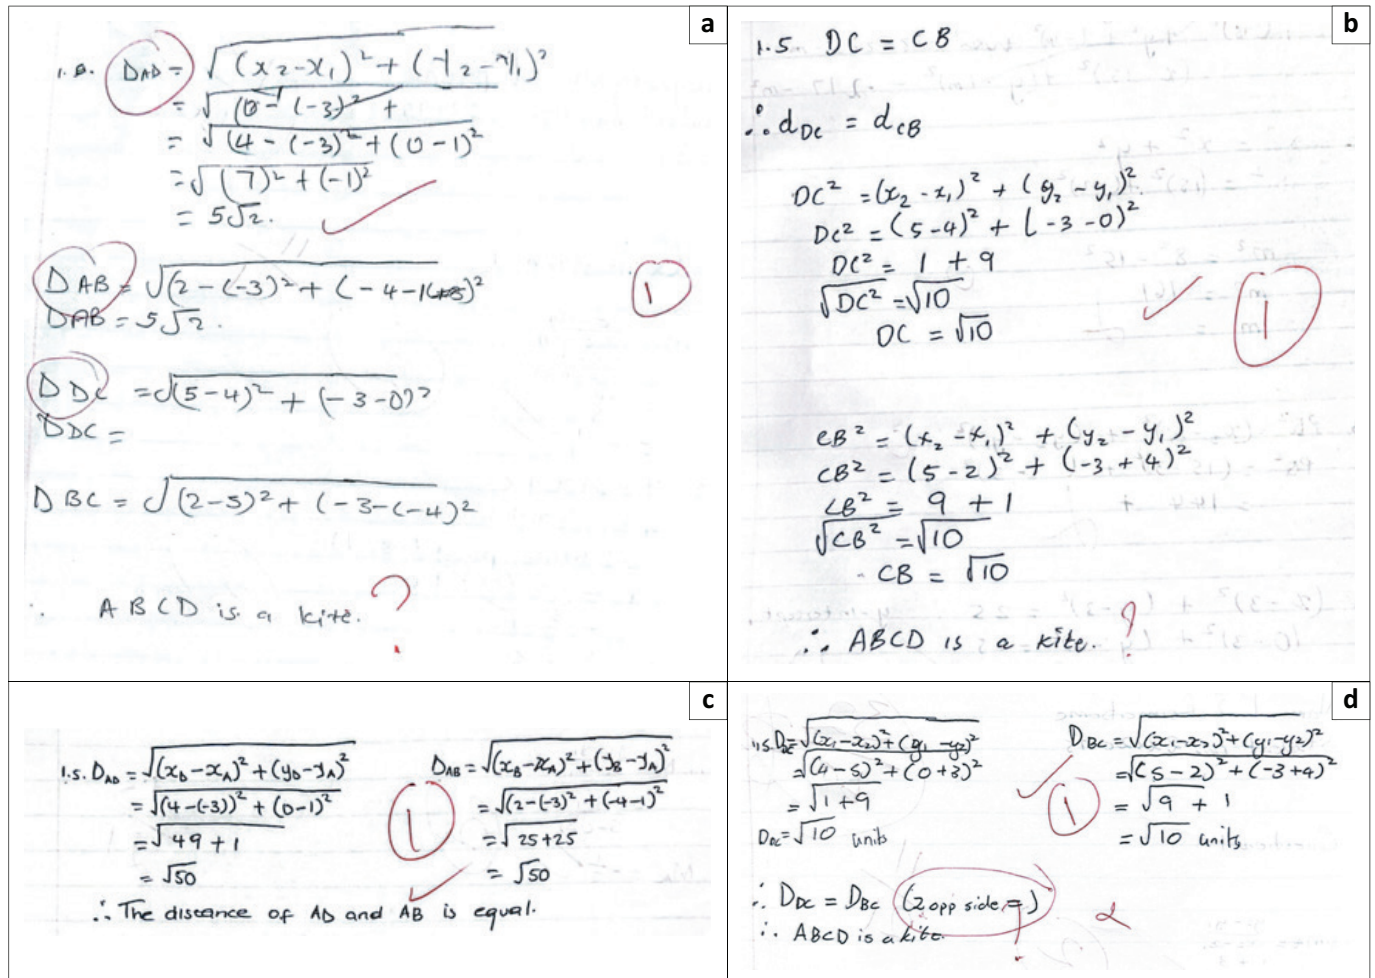 a
1.5. D_AD = √(x₂-x₁)² + (y₂-y₁)²
= √(0-(-3)² +
= √(4-(-3)² + (0-1)²
= √(7)² + (-1)²
= 5√2.
D AB = √(2-(-3)² + (-4-1)²
DAB = 5√2.
1
D DC = √(5-4)² + (-3-0)²
D DC =
D BC = √(2-5)² + (-3-(-4)²
∴ ABCD is a kite. ?
b
1.5. DC = CB
∴ d_DC = d_CB
DC² = (x₂-x₁)² + (y₂-y₁)²
DC² = (5-4)² + (-3-0)²
DC² = 1 + 9
√DC² = √10
DC = √10
1
CB² = (x₂-x₁)² + (y₂-y₁)²
CB² = (5-2)² + (-3+4)²
CB² = 9 + 1
√CB² = √10
CB = √10
∴ ABCD is a kite. ?
c
1.5. D_AD = √(x_D-x_A)² + (y_D-y_A)²
= √(4-(-3))² + (0-1)²
= √49 + 1
= √50
D_AB = √(x_B-x_A)² + (y_B-y_A)²
= √(2-(-3)² + (-4-1)²
= √25+25
= √50
1
∴ The distance of AD and AB is equal.
d
1.5. D_DC = √(x₁-x₂)² + (y₁-y₂)²
= √(4-5)² + (0+3)²
= √1+9
D_DC = √10 units
D_BC = √(x₁-x₂)² + (y₁-y₂)²
= √(5-2)² + (-3+4)²
= √9 + 1
= √10 units
1
∴ D_DC = D_BC (2 opp side =)
∴ ABCD is a kite. ?